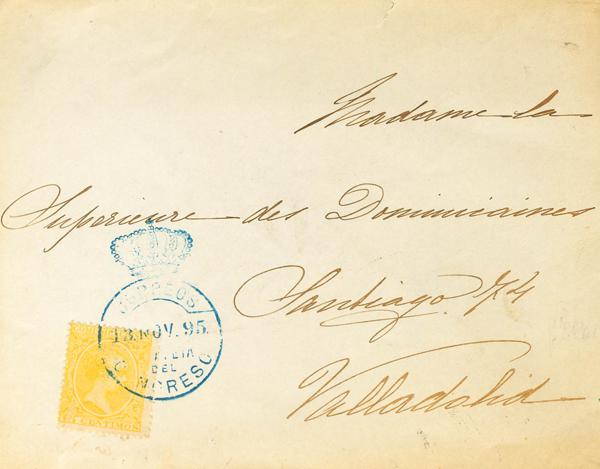 Madame la
Superieure des Dominicaines
Santiago. 74
Valladolid
CORREOS
13.NOV.95.
DEL
CONGRESO
CENTIMOS